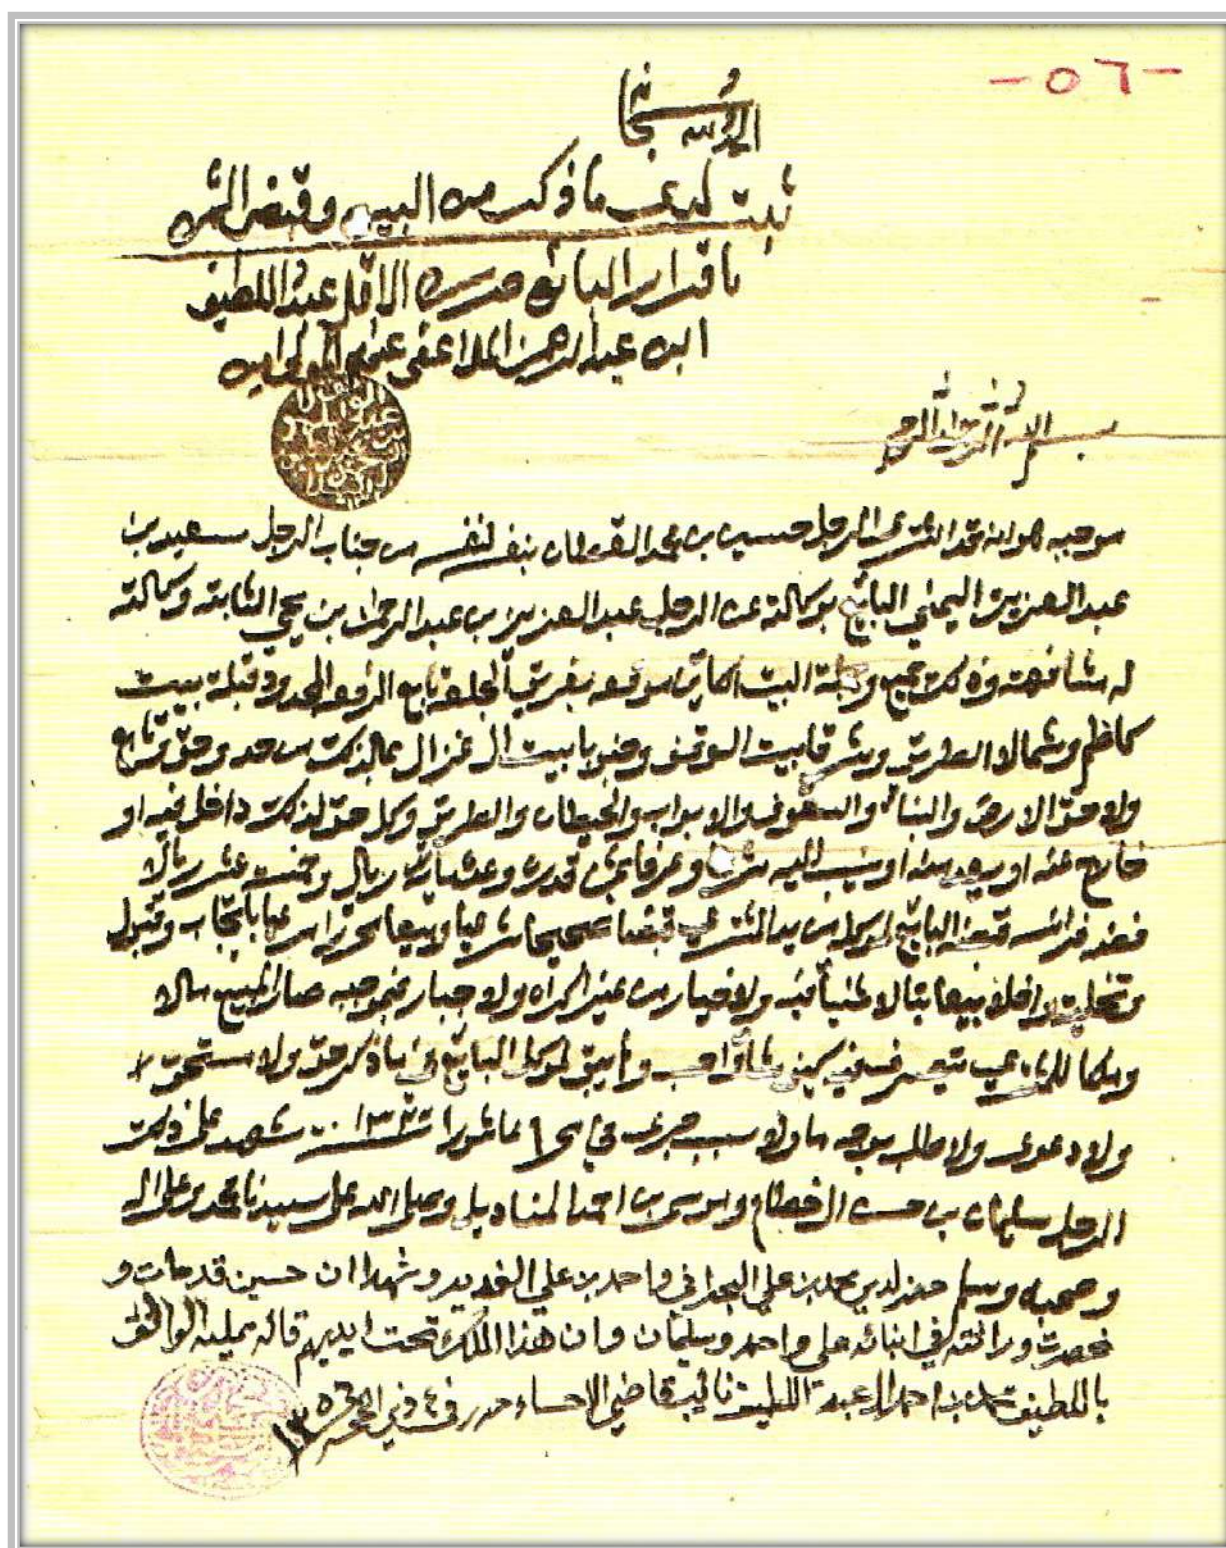 -٥٦-
الحمد لله سبحانه
ثبت لدي ما ذكر من البيع وقبض الثمن
باقرار البائع حرره الاقل عبد اللطيف
ابن عبد الرحمن الملا عفى عنهم المولى امين
بسم الله الرحمن الرحيم
موجبه هو انه قد اشترى الرجل حسين بن محمد القطان بنفسه لنفسه من جناب الرجل سعيد بن
عبد العزيز اليمني البائع بوكالة عن الرجل عبد العزيز بن عبد الرحمن بن يحي الثابته وكالته
له مشافهته وذلك جميع وجملة البيت الكاين موقعه بفريق تابع الرفعه المحدود قبلة بيت
كاظم وشمالا الطريق وشرقا بيت الوقف وجنوبا بيت ال غزال بما لذلك من حد وحق وتابع
ولاحق الارض والبناء والسقوف والابواب والحيطان والطريق وكل حق لذلك داخل فيه او
خارج عنه او يعد منه او ينسب اليه شرعا وعرفا بثمن قدره وعدته ريال وخمسة عشر ريال
فضه فرانسه قبضه البائع لموكله من يد المشتري قبضا صحيحا شرعيا وبيعا محررا مرعيا بايجاب وقبول
وتخلية بيعا بتا لا ثنيا فيه ولا خيار من غير اكراه ولا جبار فبموجبه صار المبيع مالا
وملكا للمشتري يتصرف فيه كيف شاء واحب ولم يبق لموكل البائع في ما ذكر حق ولا مستحق
ولا دعوى ولا طلب بوجه ما ولا سبب جرى في عاشورا شهد على ذلك
الرجل سليمان بن حسن وموسى بن احمد المناديلي وصلى الله على سيدنا محمد وعلى اله
وصحبه وسلم حضر لدي محمد بن علي البحراني واحمد بن علي الغدير وشهدا ان حسين قد مات و
نحصرت وراثته في ابنائه علي واحمد وسليمان وان هذا الملك تحت ايديهم قاله ممليه الواثق
باللطيف محمد بن احمد ال عبد اللطيف نائب قاضي الاحساء حرر في ٤ ذي الحجه